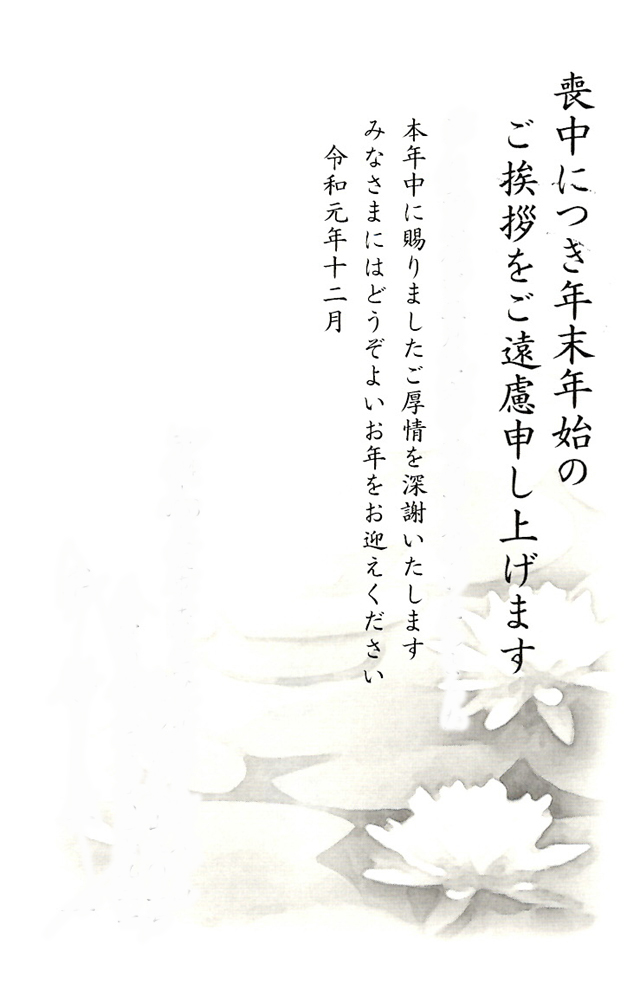 喪中につき年末年始の
ご挨拶をご遠慮申し上げます
本年中に賜りましたご厚情を深謝いたします
みなさまにはどうぞよいお年をお迎えください
令和元年十二月